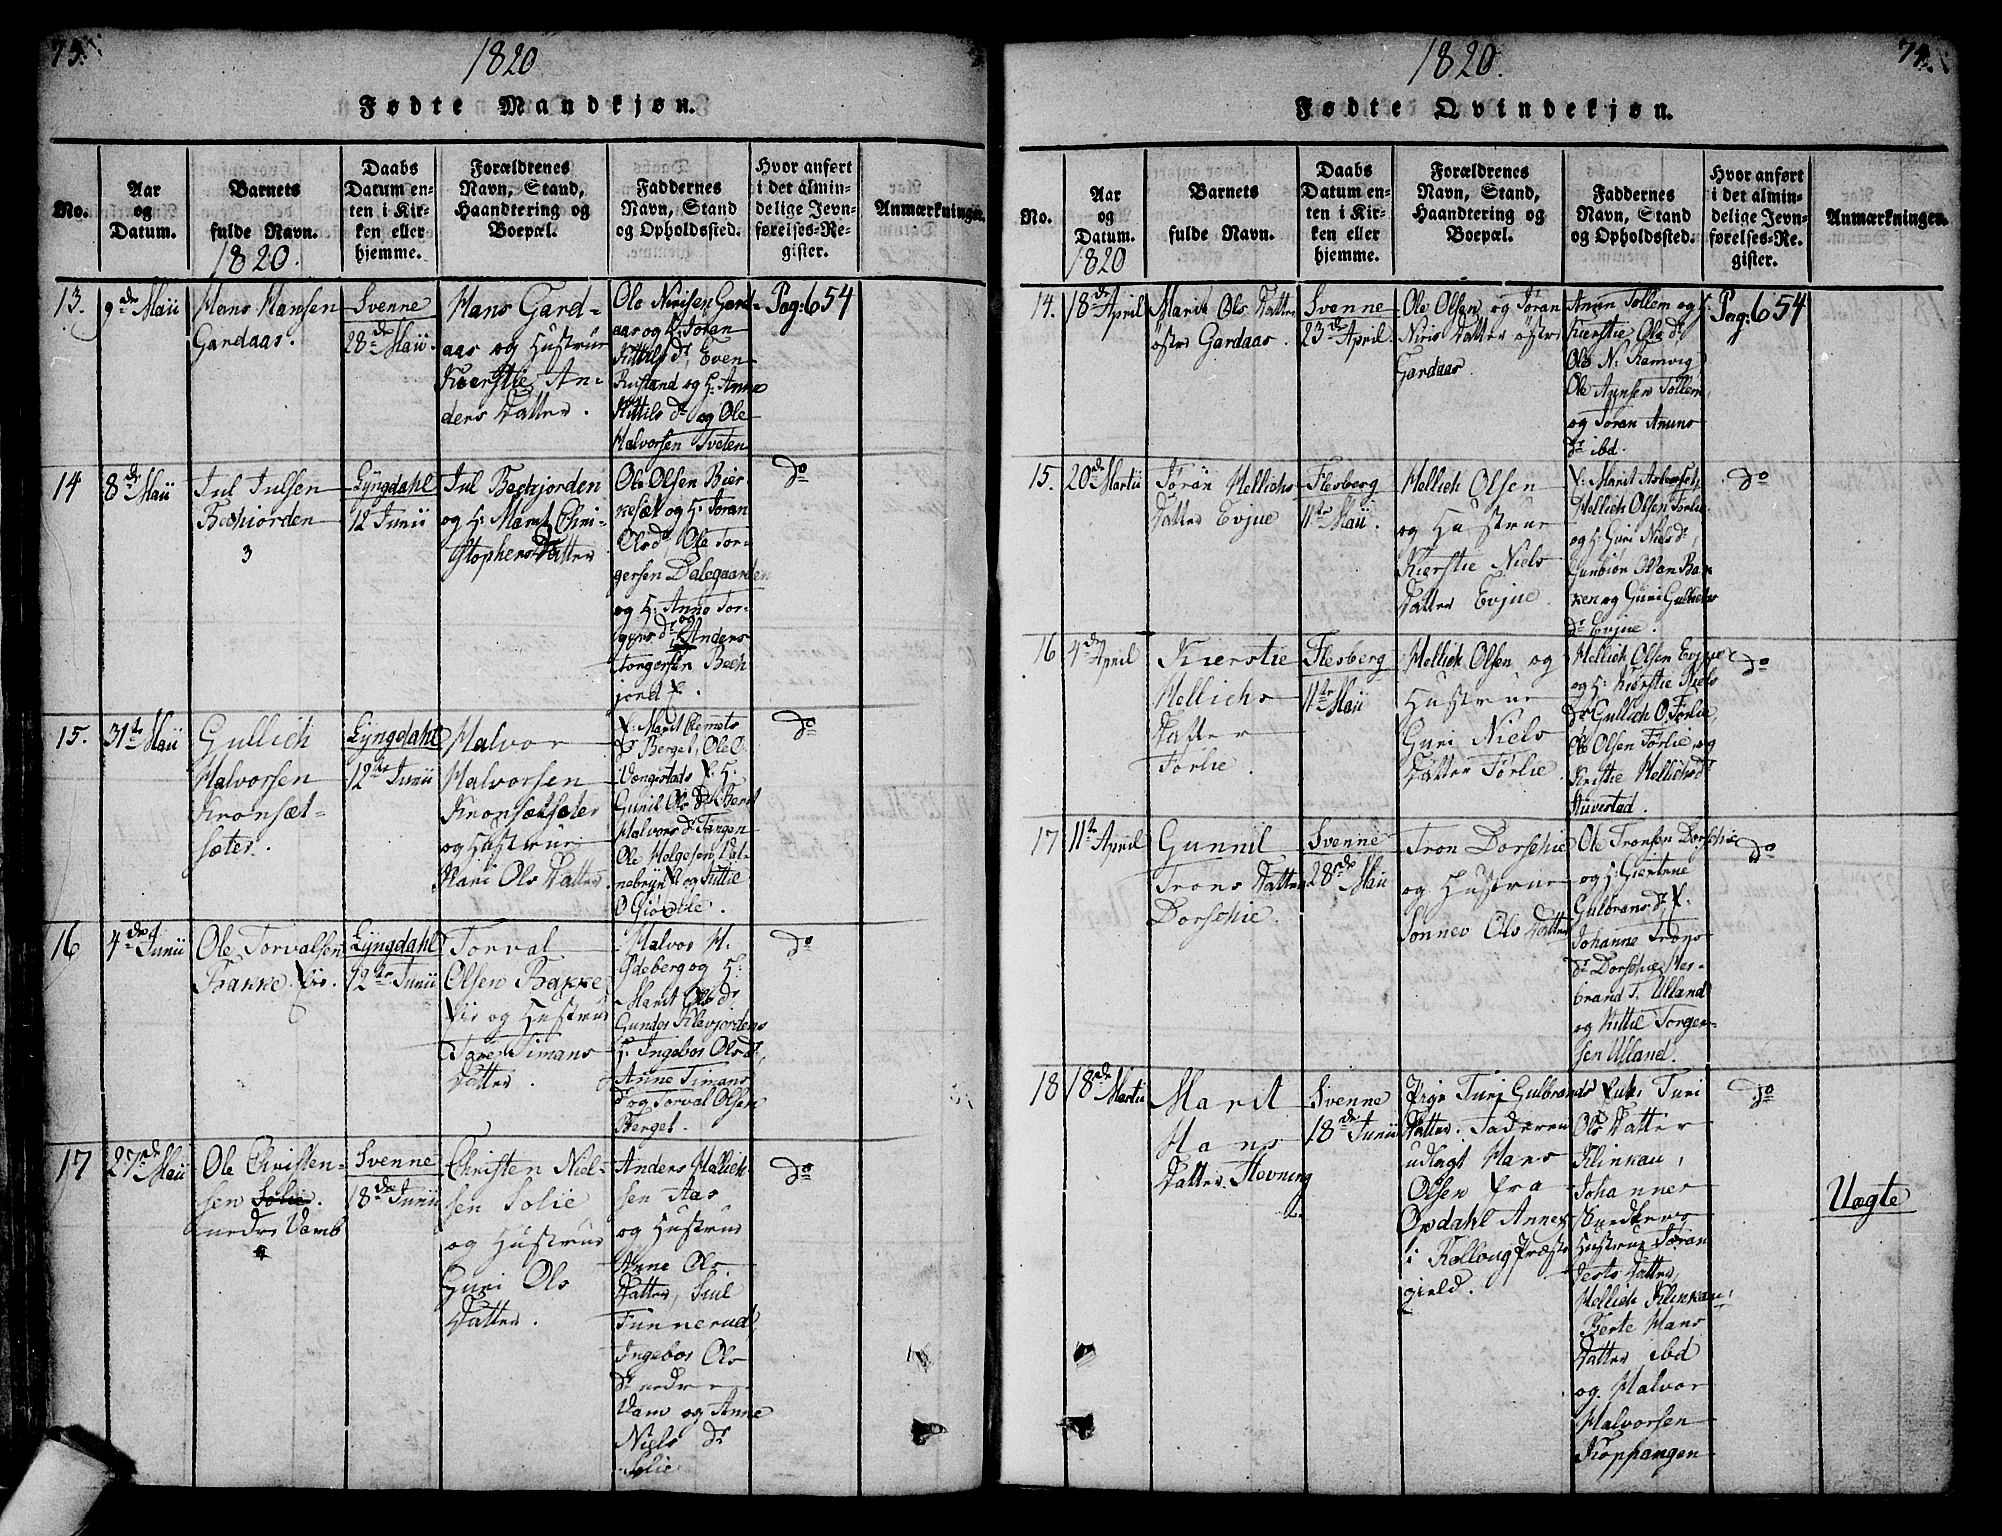 73.
1820
Fødte Mandkjøn.
No.
Aar
og
Datum.
Barnets
fulde Navn.
1820.
Daabs
Datum en-
ten i Kir-
ken eller
hjemme.
Forældrenes
Navn, Stand,
Haandtering og
Boepæl.
Faddernes
Navn, Stand
og Opholdssted.
Hvor anført
i det almin-
delige Jevn-
førelses-Re-
gister.
Anmærkninger.
13.
9de Maii
Hans Hansen
Gardaas.
Svenne
28de Maii.
Hans Gard-
aas og Hustrue
Kierstie An-
ders Datter.
Ole Nirisen Gard-
aas og H: Joran
Kittils dr, Even
Rustand og H: Anne
Kittils dr og Ole
Halvorsen Tveten
Pag: 654
14
8de Maii
Jul Julsen
Bechiorden
3
Lyngdahl
12 Junii
Jul Bechjorden
og H: Marit Chri-
stophers Datter
Ole Olsen Bier
kesæt og H: Joran
Ols dr, Ole Tor-
gersen Dalegaarden
og H: Anne Tor-
gers dr og Anders
Torgersen Bech
jord
do
15.
31te Maii
Gullich
Halvorsen
Kronsæt-
sæter.
Lyngdahl
12te Junii
Halvor
Halvorsen
Kronsætsæter
og Hustrue
Kari Ols Datter
Marit Clemets
dr Berget, Ole O.
Vangestads
Gunil Ols dr
Halvors dr Tangen
Ole Helgesen
og Kittil
do
16
4de Junii
Ole Torvalsen
Bakke
Lyngdahl
12te Junii
Torval
Olsen Bakke
og Hustrue
Timans
Datter.
Halvor H.
og H:
Marit Ols dr,
H: Ingebor Ols dr,
Anne Timans
dr og Torval Olsen
Berget.
do
17
27de Maii
Ole Christen-
sen Solie.
nedre Vamb
Svenne
18de Junii
Christen Niel-
sen Solie
og Hustrue
Guri Ols
Datter.
Anders Hellich
sen Aas
og Hustrue
Anne Ols
Datter, Juul
Funnerud
Ingebor Ols
dr nedre
Vam og Anne
Niels dr
Solie
do
74.
1820.
Fødte Qvindekjøn.
No.
Aar
og
Datum.
1820
Barnets
fulde Navn.
Daabs
Datum en-
ten i Kir-
ken eller
hjemme.
Forældrenes
Navn, Stand,
Haandtering og
Boepæl.
Faddernes
Navn, Stand
og Opholdssted.
Hvor anført
i det almin-
delige Jevn-
førelses-Re-
gister.
Anmærkninger.
14.
18de April
Marit Ols Datter
østre Gardaas.
Svenne
23de April.
Ole Olsen og Jøran
Niris Datter østre
Gardaas.
Anun Tollem og H:
Kierstie Ole dr
Ole N. Ramvig
Ole Anunsen Tollem,
og Joran Anuns
dr ibd.
Pag: 654
15.
20de Martii
Jørån Hellichs
Datter Evjue
Flesberg
11te Maii.
Hellich Olsen
og Hustrue
Kierstie Niels
Datter Evjue
Marit
Hellich Olsen Førlie
og H: Guri Niels dr,
Gunbiør Olsen Bak
ken og Guri Gulbichs
dr Evjue.
do
16
4de April
Kierstie
Hellichs
Datter
Førlie.
Flesberg
11te Maii
Hellich Olsen og
Hustrue
Guri Niels
Datter Førlie.
Hellich Olsen Evjue
og H: Kierstie Niels
dr Gullich O. Førlie,
Ole Olsen Førlie, og
Kirstie Hellichs dr
Huvestad.
do
17
11te April
Gunnil
Trons Datter
Dorschie.
Svenne
28de Maii
Tron Dorschie
og Hustrue
Sønnev Ols Datter
Ole Tronsen Dorschie
og H: Giertrue
Gulbrans dr.
Johanne Trons
dr Dorschie, Her-
brand T. Ulland
og Kittil Torger-
sen Ulland.
do
18
18de Martii
Marit
Hans
Datter Hovning
Svenne
18de Junii
Pige Turi Gulbrands
Datter. Faderen
udlagt Hans
Olsen fra
Opdahl Annex
i Rolloug Præste
gield.
Enke Turi
Ols Datter
Klinkau,
Johannes
Snedker og
Hustrue Joran
Jests Datter,
Hellich Klinkau,
Berte Hans
Datter ibd
og Halvor
Halvorsen
Koppangen
do
Uægte